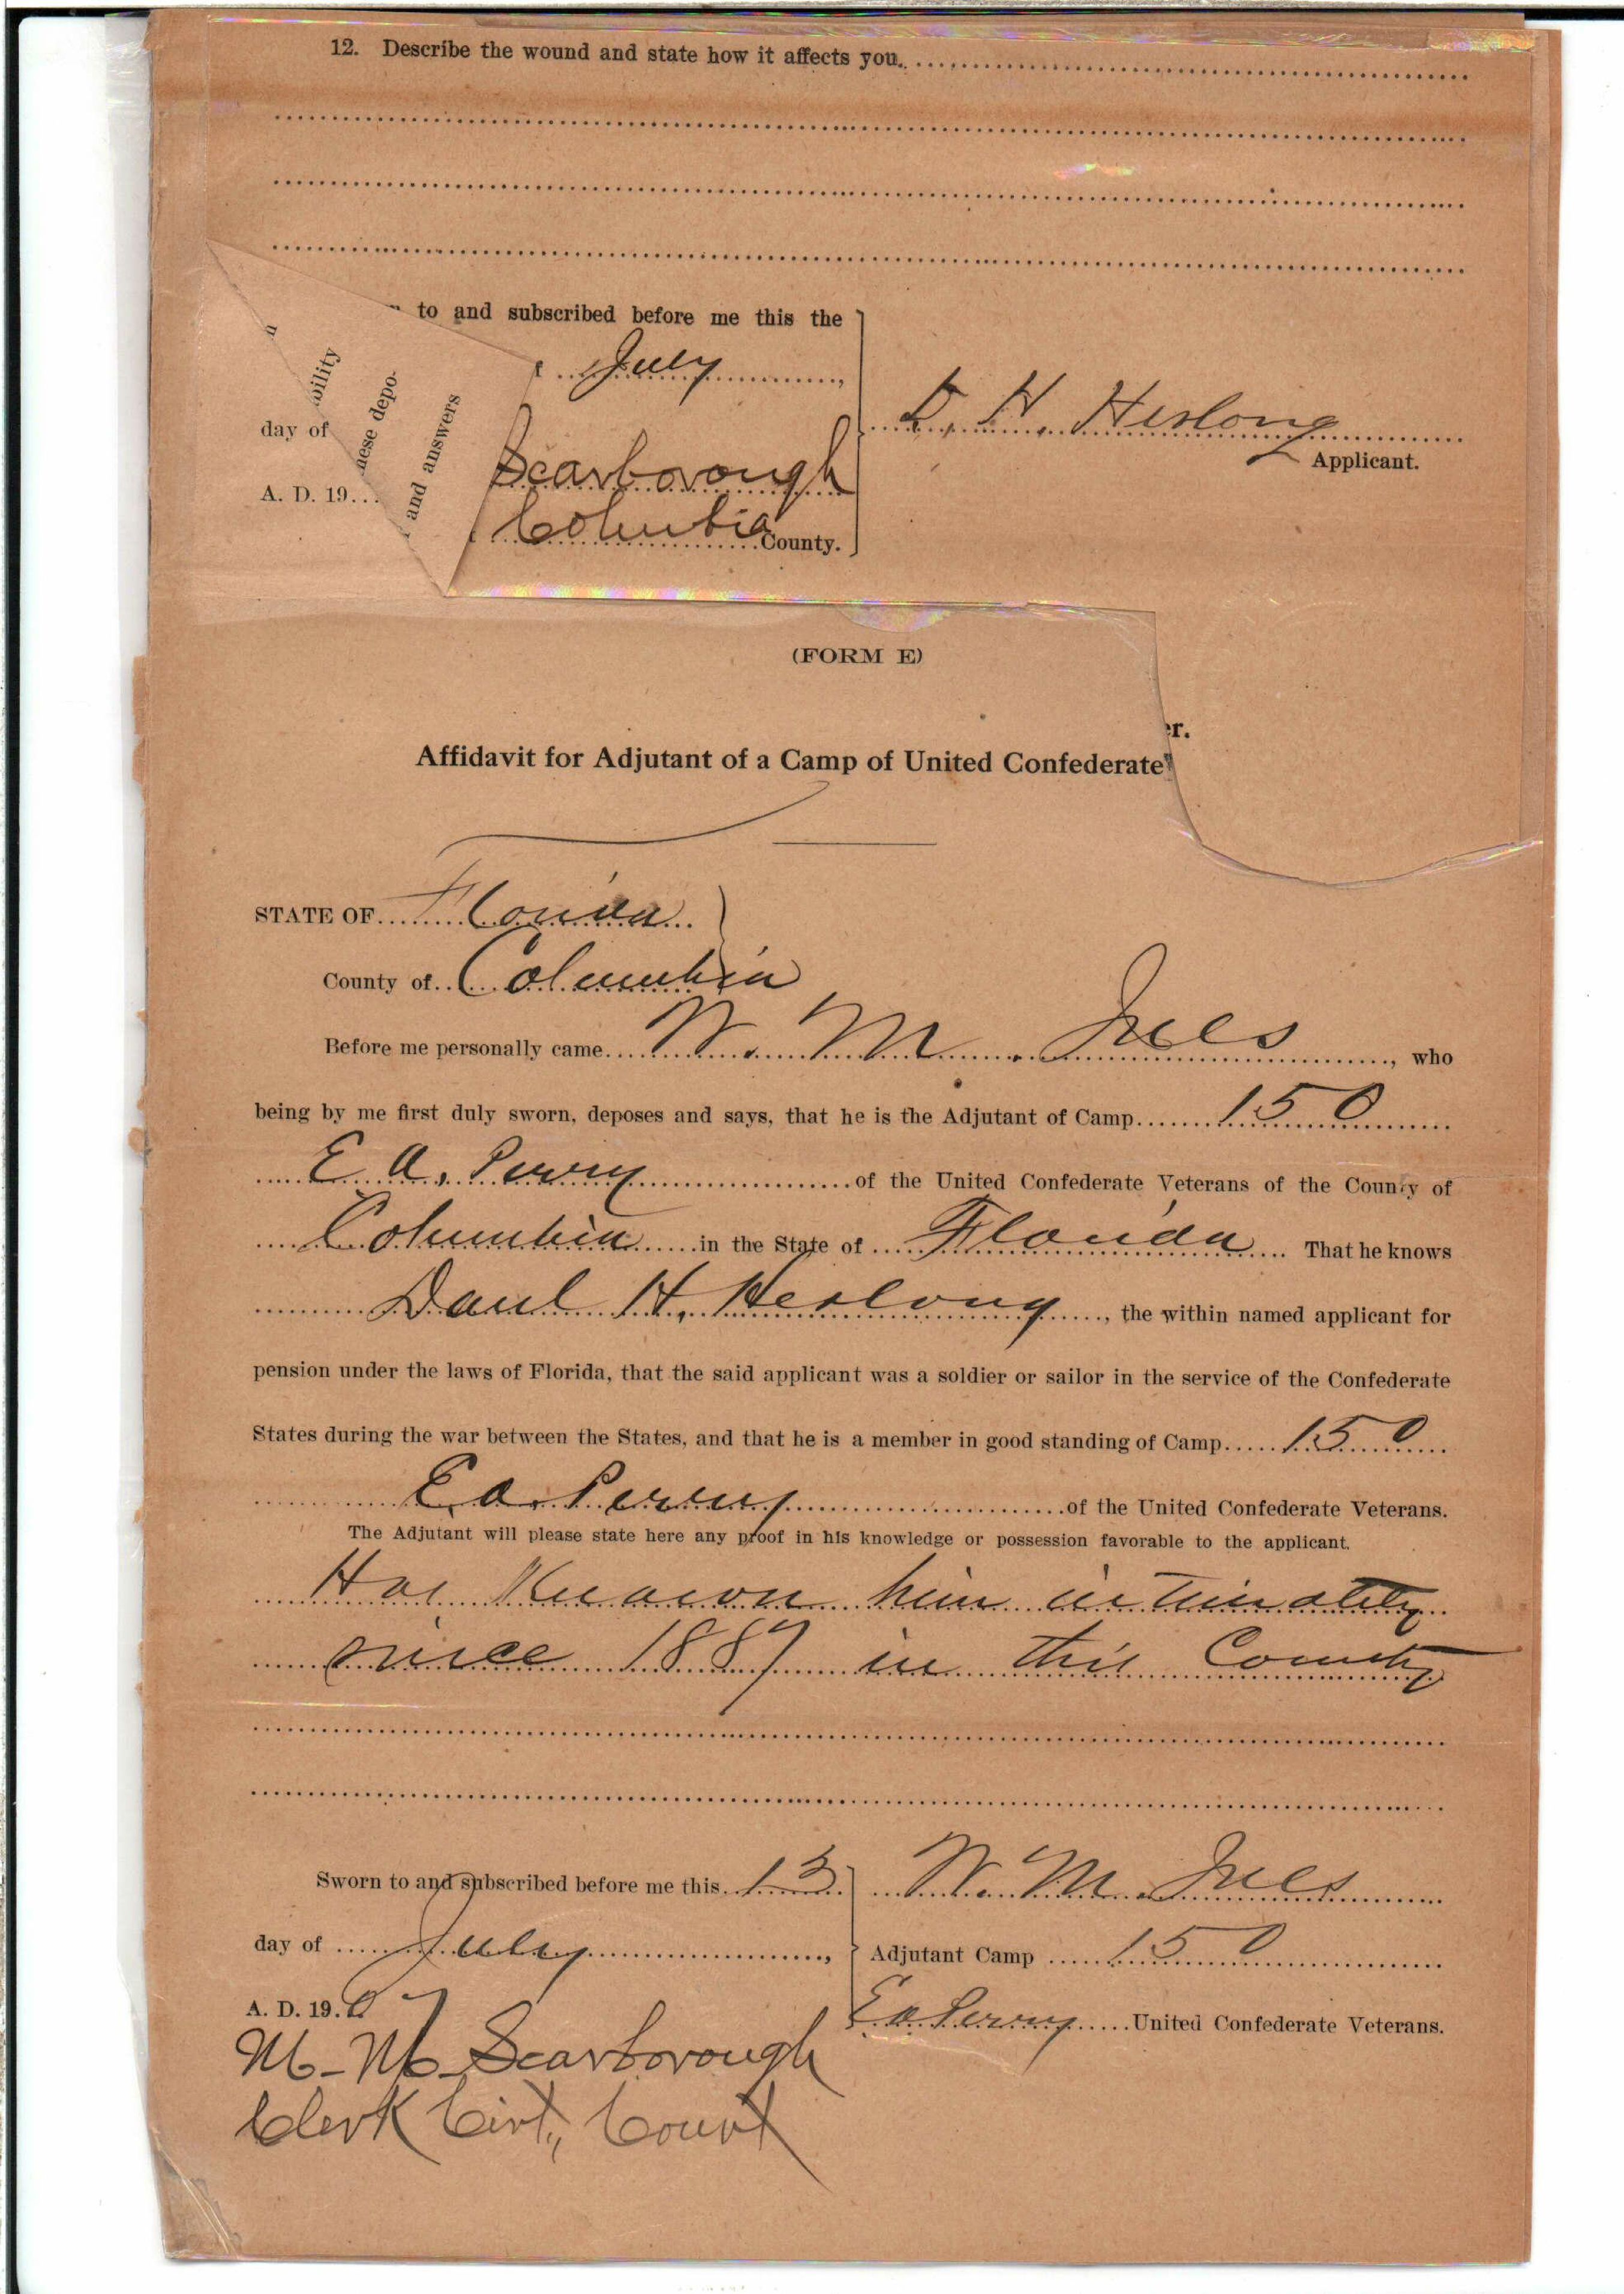 12. Describe the wound and state how it affects you.
to and subscribed before me this the
July
day of
A. D. 19
bility
nese depo-
and answers
Scarborough
Columbia County.
D. H. Heslong
Applicant.
(FORM E)
er.
Affidavit for Adjutant of a Camp of United Confederate
STATE OF Florida
County of Columbia
Before me personally came W. M. Ives, who
being by me first duly sworn, deposes and says, that he is the Adjutant of Camp 150
E. A. Perry of the United Confederate Veterans of the County of
Columbia in the State of Florida That he knows
Danl H. Heslong, the within named applicant for
pension under the laws of Florida, that the said applicant was a soldier or sailor in the service of the Confederate
States during the war between the States, and that he is a member in good standing of Camp 150
E. A. Perry of the United Confederate Veterans.
The Adjutant will please state here any proof in his knowledge or possession favorable to the applicant.
Has Known him intimately
since 1887 in this County
Sworn to and subscribed before me this 13
day of July,
A. D. 1907
M. M. Scarborough
Clerk Cirt., Court
W. M. Ives
Adjutant Camp 150
E A Perry United Confederate Veterans.